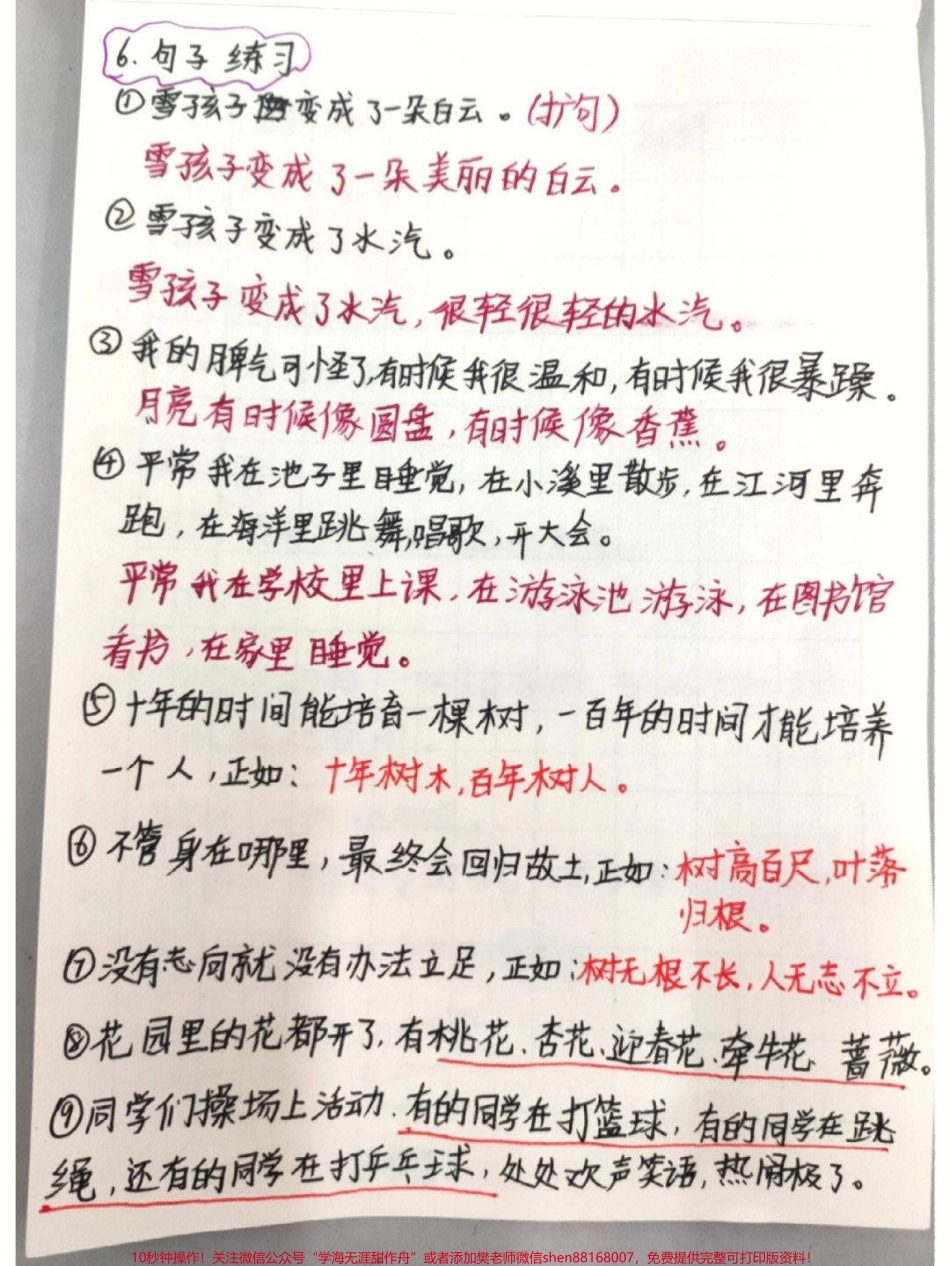 6.句子练习
①雪孩子变成了一朵白云。(扩句)
雪孩子变成了一朵美丽的白云。
②雪孩子变成了水汽。
雪孩子变成了水汽,很轻很轻的水汽。
③我的脾气可怪了,有时候我很温和,有时候我很暴躁。
月亮有时候像圆盘,有时候像香蕉。
④平常我在池子里睡觉,在小溪里散步,在江河里奔
跑,在海洋里跳舞,唱歌,开大会。
平常我在学校里上课,在游泳池游泳,在图书馆
看书,在家里睡觉。
⑤十年的时间能培育一棵树,一百年的时间才能培养
一个人,正如:十年树木,百年树人。
⑥不管身在哪里,最终会回归故土,正如:树高百尺,叶落
归根。
⑦没有志向就没有办法立足,正如:树无根不长,人无志不立。
⑧花园里的花都开了,有桃花、杏花、迎春花、牵牛花 蔷薇。
⑨同学们操场上活动、有的同学在打篮球,有的同学在跳
绳,还有的同学在打乒乓球,处处欢声笑语,热闹极了。
10秒钟操作!关注微信公众号“学海无涯甜作舟”或者添加樊老师微信shen88168007,免费提供完整可打印版资料!